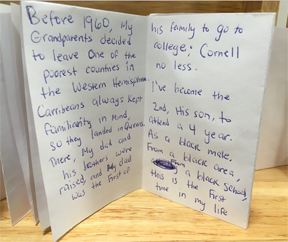 Before 1960, My
Grandparents decided
to leave One of the
poorest countries in
the Western Hemisphere
Carribeans always kept
familiarity in Mind,
so they landed in Queens.
There, My dad and
his brothers were
raised, and My dad
was the first of
his family to go to
college; Cornell
no less.
I've become the
2nd, His son, to
attend a 4 year.
As a black male,
From a black area,
a black School,
this is the first
time in my life